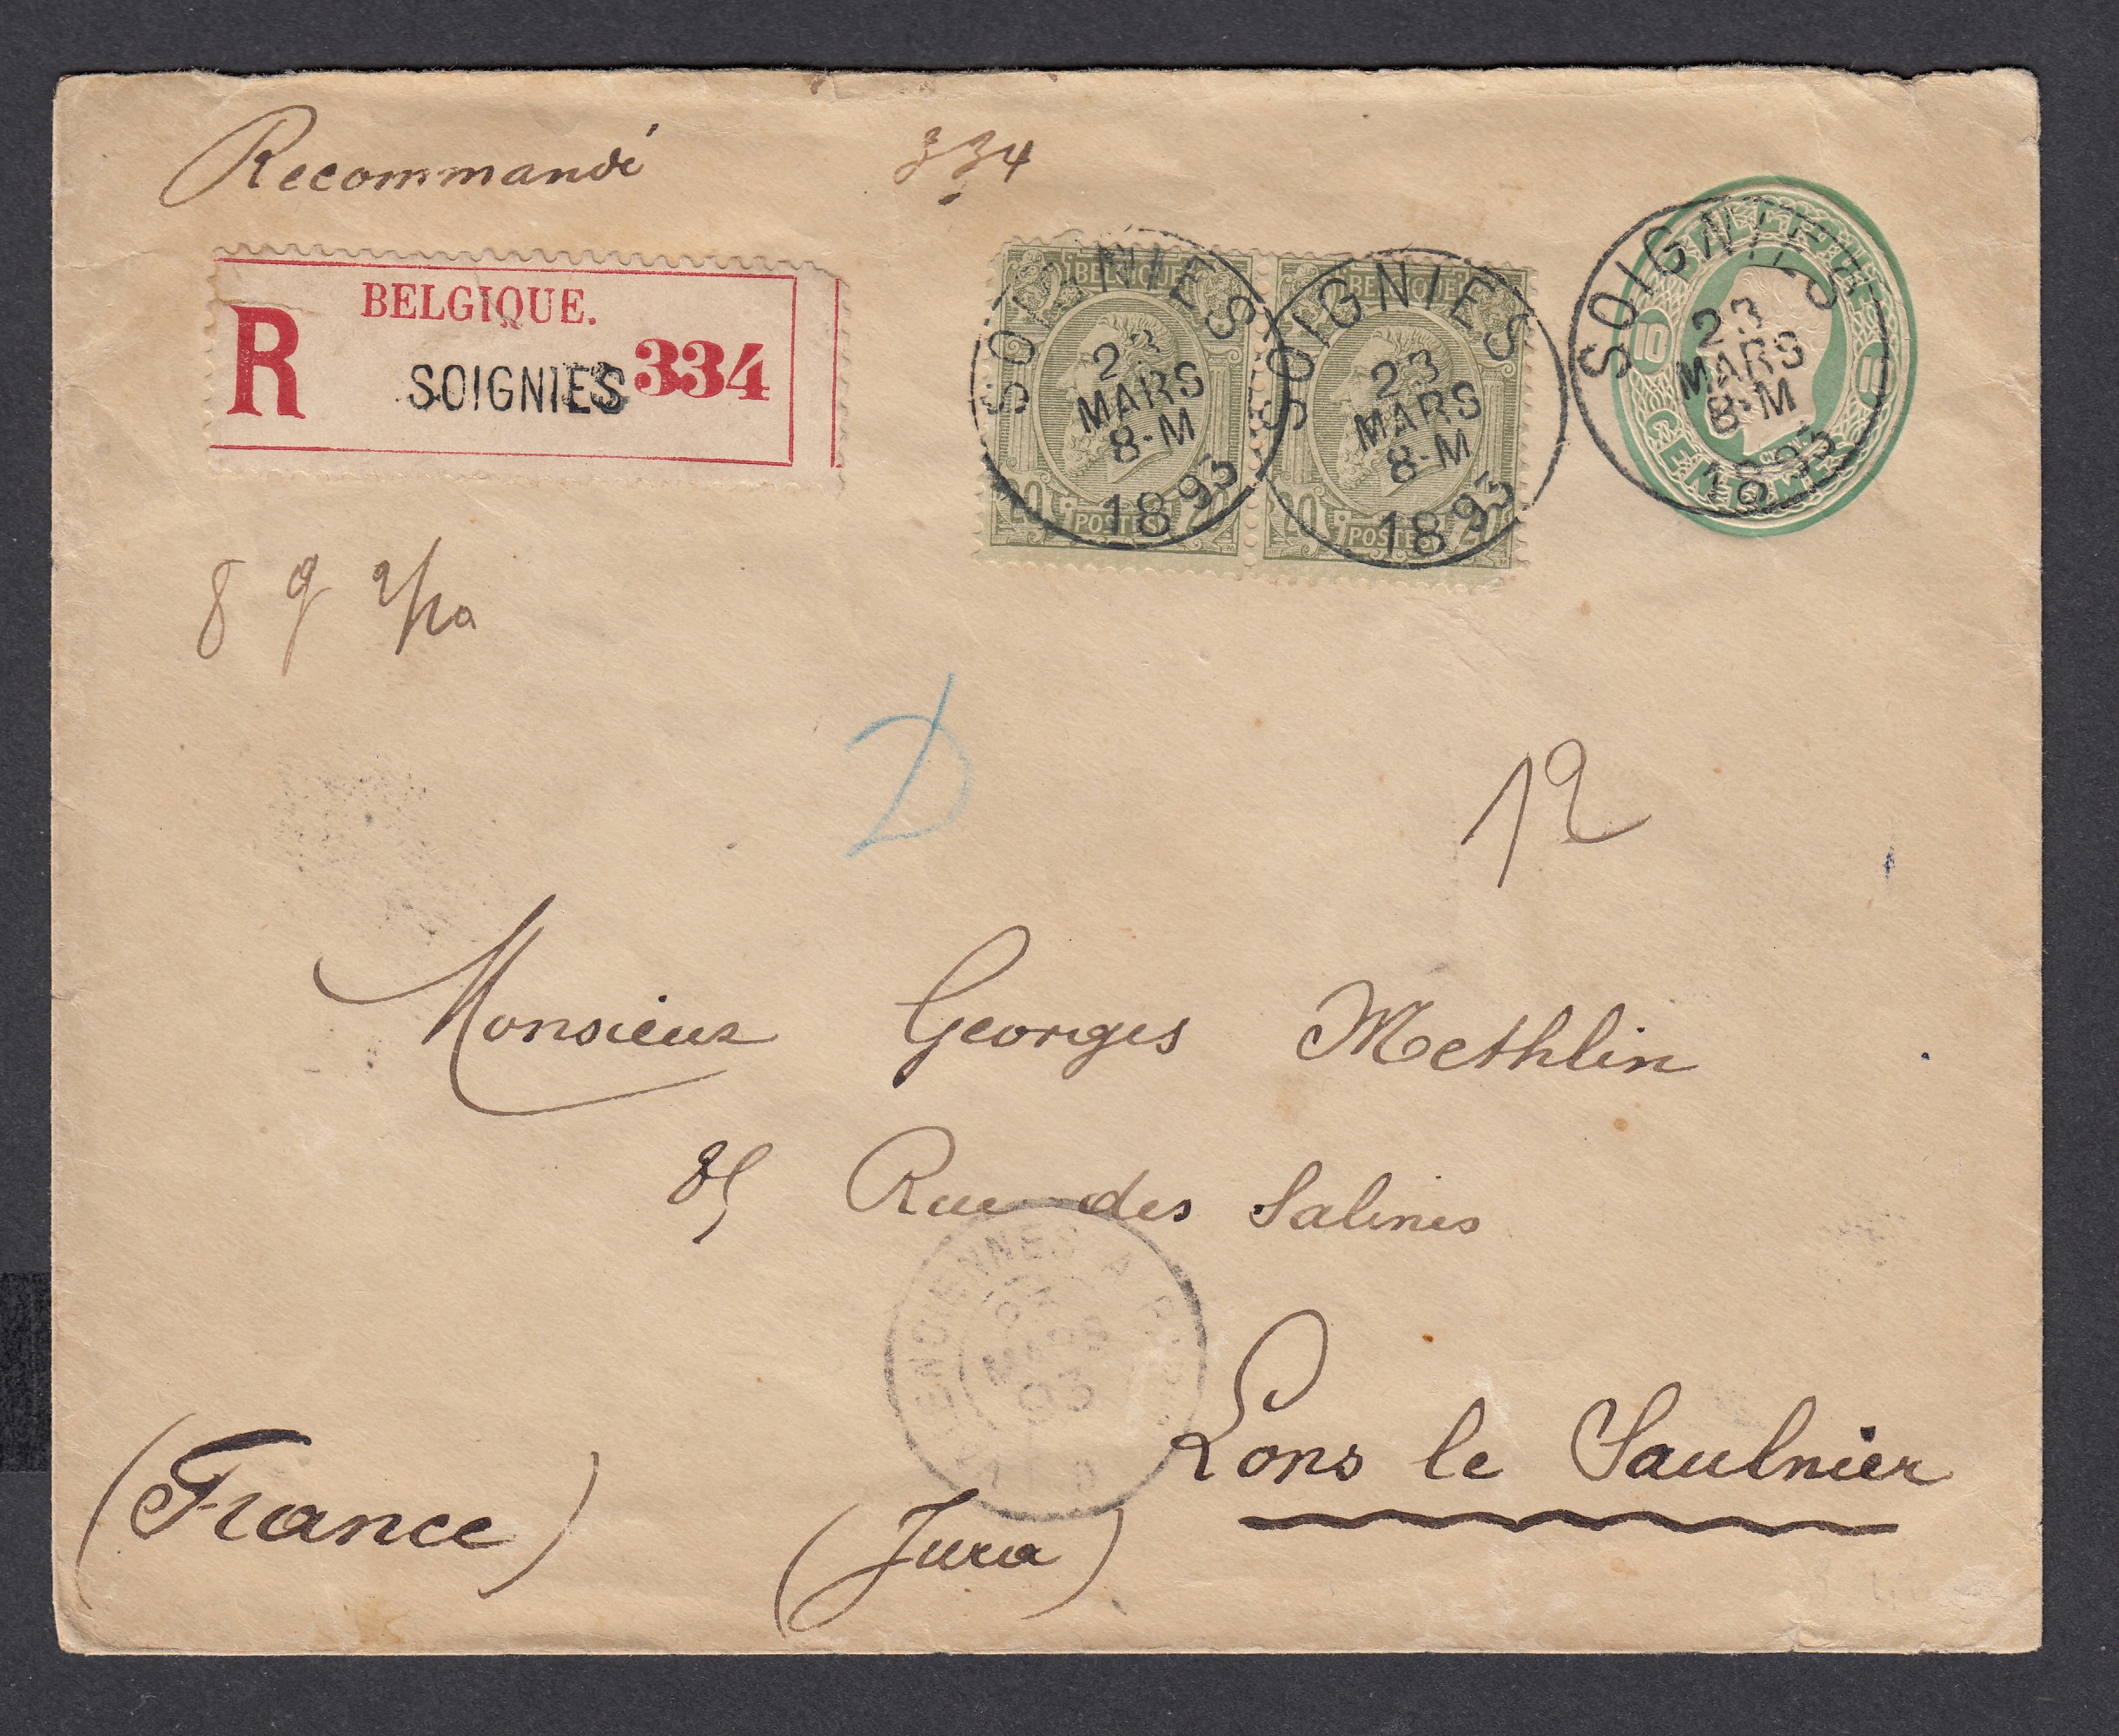 Recommandé 334
BELGIQUE.
R SOIGNIES 334
BELGIQUE
20 POSTES 20
SOIGNIES
23
MARS
8-M
1893
BELGIQUE
20 POSTES 20
SOIGNIES
23
MARS
8-M
1893
BELGIQUE
10 10
CENTIMES
SOIGNIES
23
MARS
8-M
1893
8 g
D
12
Monsieur Georges Methlin
85 Rue des Salines
VALENCIENNES A
MARS
93
Lons le Saulnier
(France) (Jura)